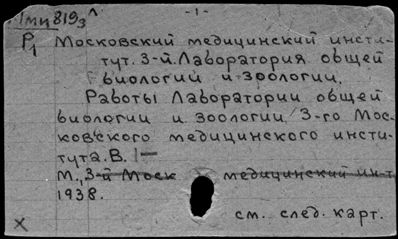 1мц 819з Λ - 1 -
Р₁ Московский медицинский инсти-
тут. 3-й. Лаборатория общей
биологии и зоологии.
Работы Лаборатории общей
биологии и зоологии / 3-го Мос-
ковского медицинского инсти-
тута. В. 1 —
М., 3-й Моск медицинский ин-т
1938.
см. след. карт.
×